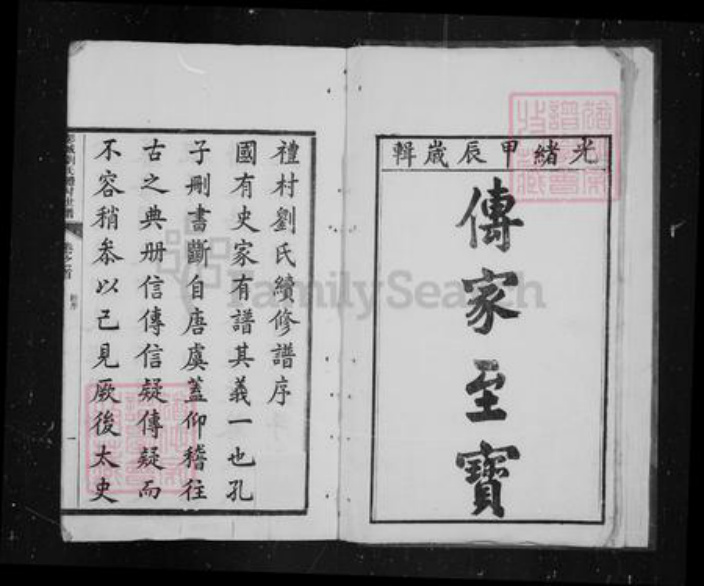 光緒甲辰歲輯
傳家至寶
禮村劉氏續修譜序
國有史家有譜其義一也孔
子刪書斷自唐虞蓋仰稽往
古之典册信傳信疑傳疑而
不容稍叅以己見厥後太史
一
FamilySearch